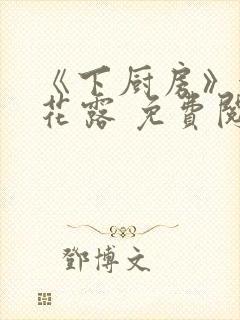 《下厨房》
花露 免費閱
鄧博文